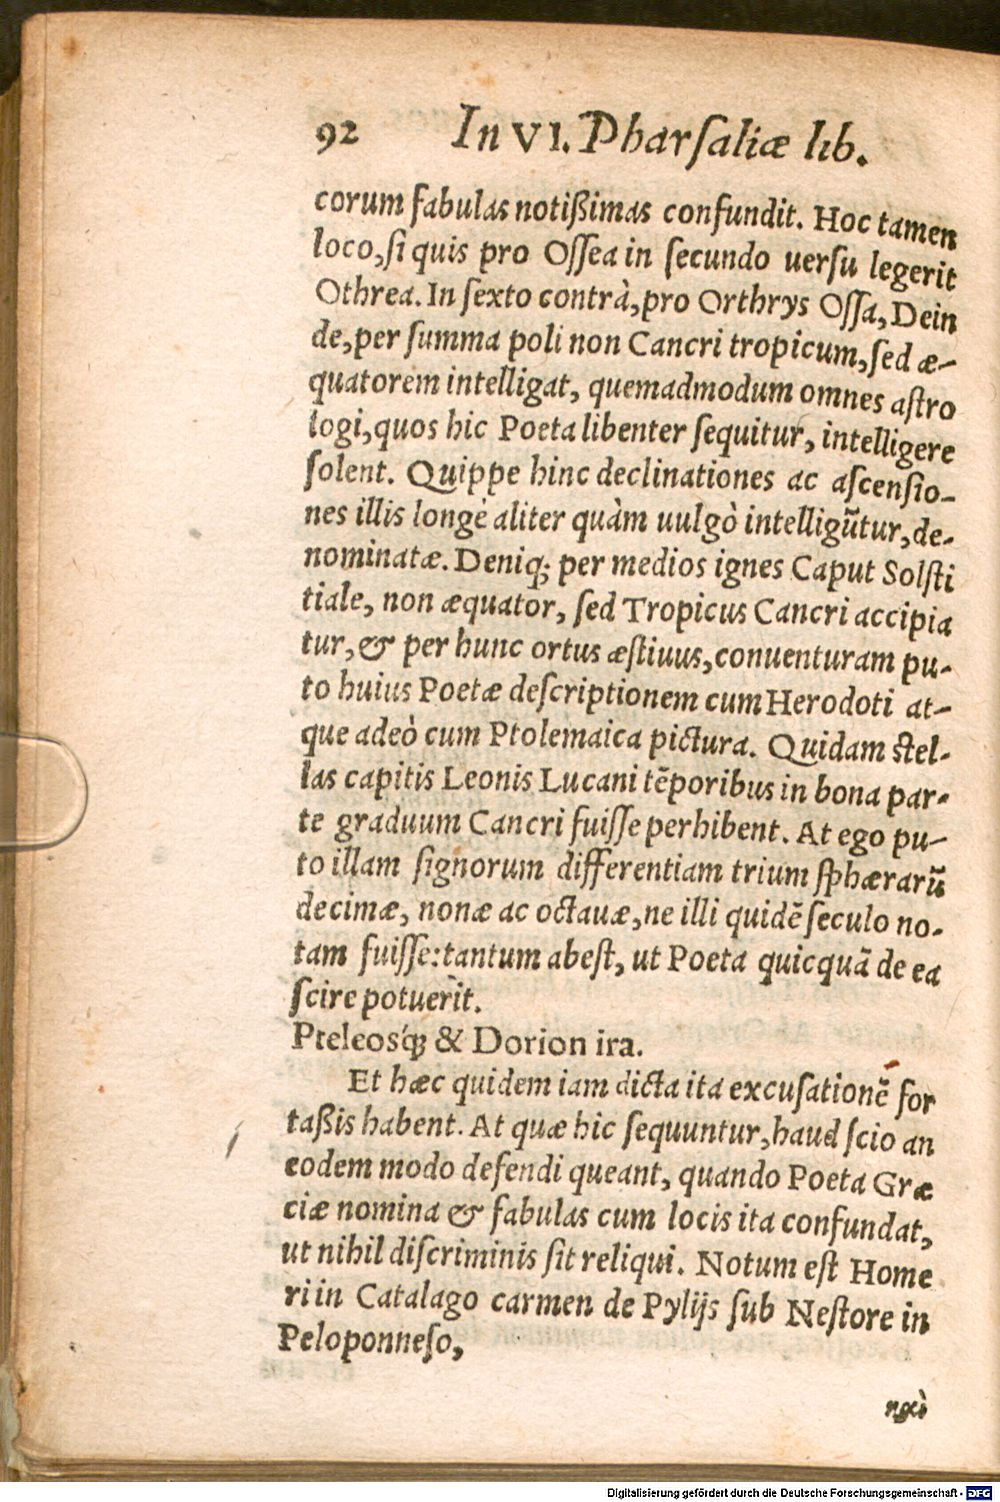 92 In VI. Pharſaliæ lib.
corum fabulas notißimas confundit. Hoc tamen
loco, ſi quis pro Oſſea in ſecundo uerſu legerit
Othrea. In ſexto contrà, pro Orthrys Oſſa, Dein
de, per ſumma poli non Cancri tropicum, ſed æ-
quatorem intelligat, quemadmodum omnes aſtro
logi, quos hic Poeta libenter ſequitur, intelligere
ſolent. Quippe hinc declinationes ac aſcenſio-
nes illis longè aliter quàm uulgò intelligũtur, de-
nominatæ. Deniq; per medios ignes Caput Solſti
tiale, non æquator, ſed Tropicus Cancri accipia
tur, & per hunc ortus æſtiuus, conuenturam pu-
to huius Poetæ deſcriptionem cum Herodoti at-
que adeò cum Ptolemaica pictura. Quidam ſtel-
las capitis Leonis Lucani tẽporibus in bona par-
te graduum Cancri fuiſſe perhibent. At ego pu-
to illam ſignorum differentiam trium ſphærarũ
decimæ, nonæ ac octauæ, ne illi quidẽ ſeculo no-
tam fuiſſe: tantum abeſt, ut Poeta quicquã de ea
ſcire potuerit.
Pteleosq́; & Dorion ira.
Et hæc quidem iam dicta ita excuſationẽ for
taßis habent. At quæ hic ſequuntur, haud ſcio an
eodem modo defendi queant, quando Poeta Græ
ciæ nomina & fabulas cum locis ita confundat,
ut nihil diſcriminis ſit reliqui. Notum eſt Home
ri in Catalago carmen de Pylijs ſub Neſtore in
Peloponneſo,
καὶ
Digitalisierung gefördert durch die Deutsche Forschungsgemeinschaft - DFG